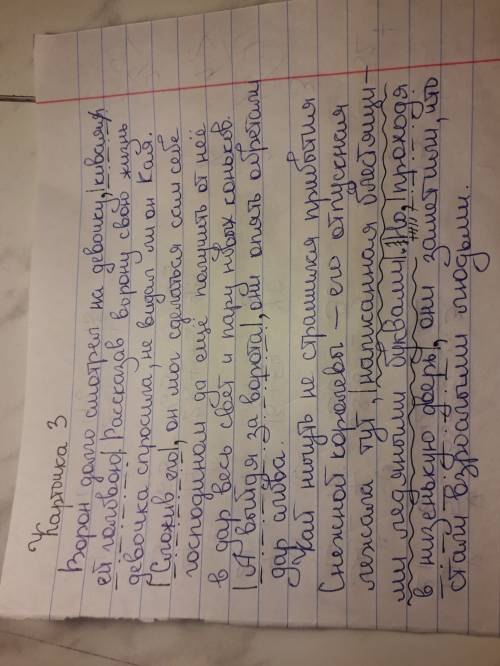 Карточка 3
Ворон долго смотрел на девочку, кивая
ей головою. Рассказав ворону свою жизнь
девочка спросила, не видал ли он Кая.
Сложив его, он мог сделаться сам себе
господином да ещё получить от неё
в дар весь свет и пару новых коньков.
А выйдя за ворота, они опять обретали
дар слова.
Кай ничуть не страшился прибытия
Снежной королевы – его отпускная
лежала тут, написанная блестящи-
ми ледяными буквами. Но, проходя
в низенькую дверь, они заметили, что
стали взрослыми людьми.